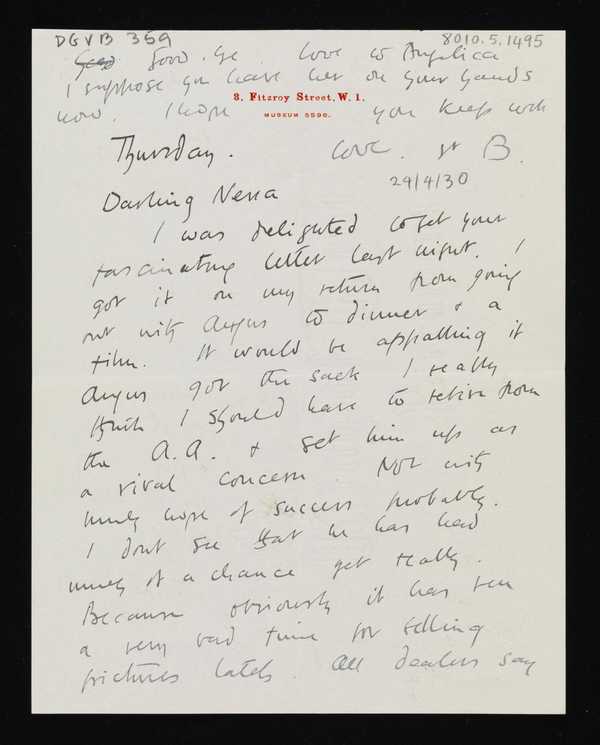 DGVB 359
8010.5.1495
Good. bye. Love to Angelica
I suppose you have her on your hands
now. I hope you keep well
3, Fitzroy Street, W. 1.
MUSEUM 5596.
Thursday.
Love. yr B.
29/4/30
Darling Nessa
I was delighted to get your
fascinating letter last night. I
got it on my return from going
out with Angus to dinner & a
film. It would be appalling if
Angus got the sack I really
think I should have to retire from
the A.A. & set him up as
a rival concern. Not with
much hope of success probably.
I dont see that he has had
much of a chance yet really.
Because obviously it has been
a very bad time for selling
pictures lately. All dealers say